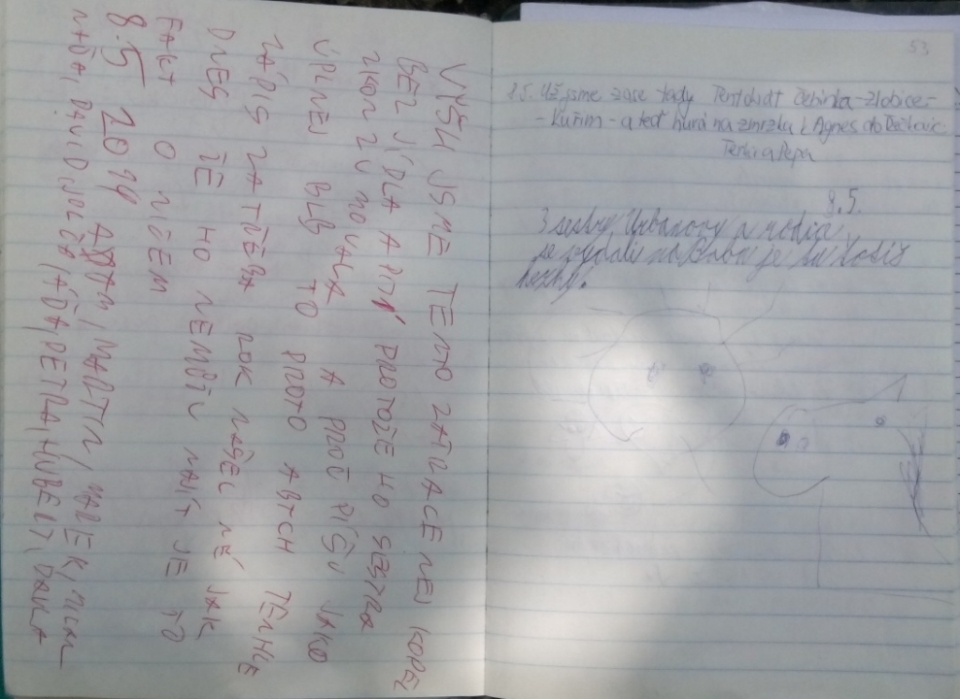 VYŠLI JSME TENTO ZATRACENEJ KOPEC
BEZ JÍDLA A PITÍ PROTOŽE HO SESTRA
ZKONZUMOVALA A PROČ PÍŠU JAKO
ÚPLNEJ BLB TO PROTO ABYCH TENHLE
ZÁPIS ZATŘEBA ROK NAŠEL NĚ JAK
DNES ŽE HO NEMŮŽU NAJÍT JE TO
FAKT O NIČEM
8.5 2014 ADAM, MARTIN, MAREK, MILAN
NAĎA, DAVID, JOLČA, HÁĎA, PETRA, HUBERT, DANA
53
8.5. Už jsme zase tady Tentokrát Čebínka - Zlobice -
- Kuřim - a teď hurá na zmrzku k Agnes do
a Pepa
8.5.
3 sestry Urbanovy a rodiče
se vydali na Babu je tu dosti
hezky.